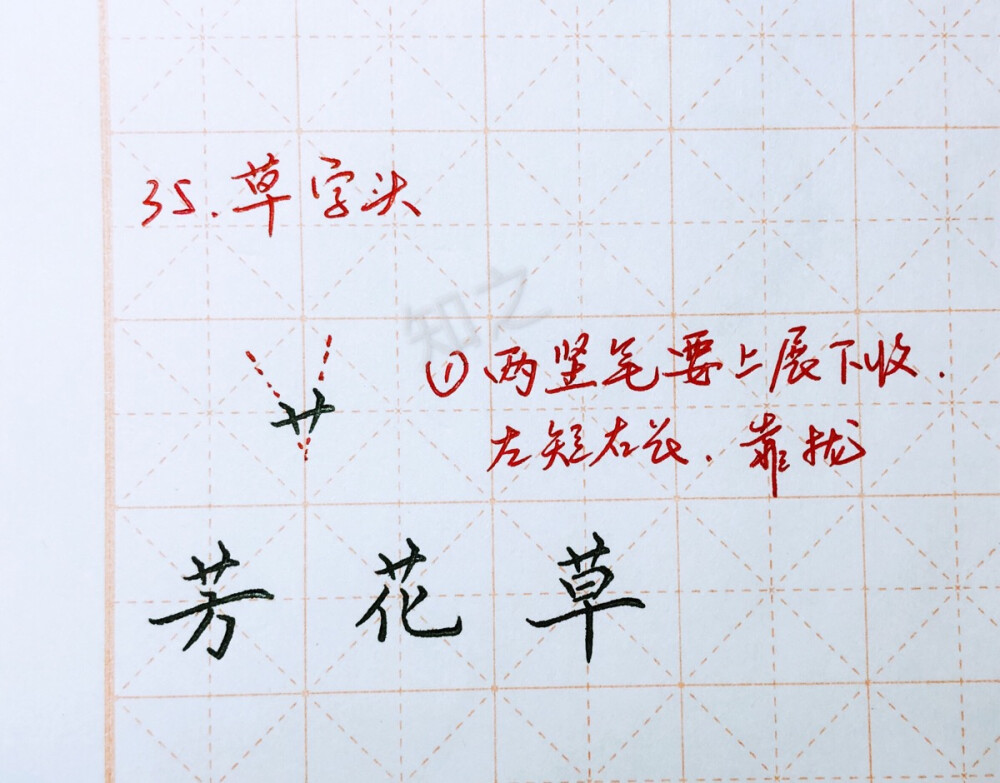 35.草字头
知之
①两竖笔要上展下收.
左短右长.靠拢
艹
芳花草